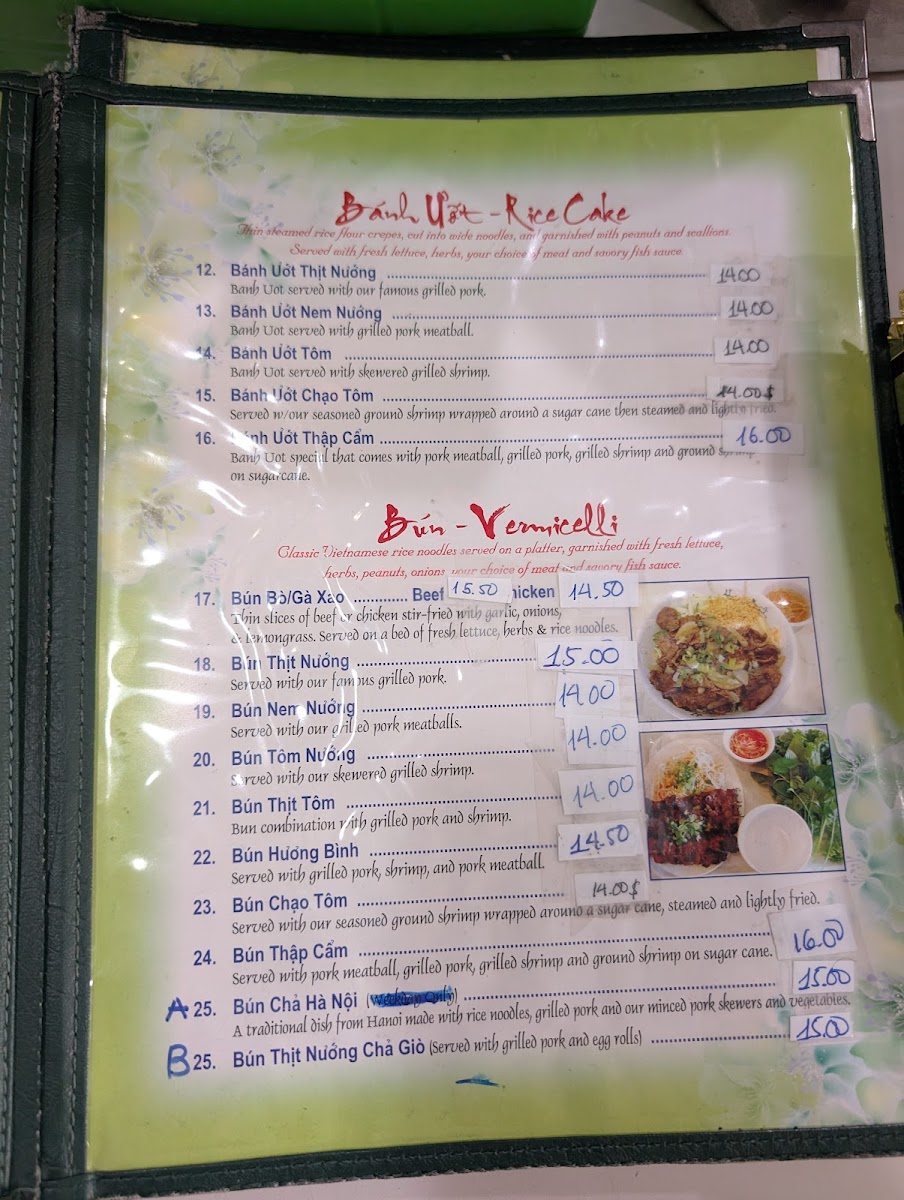 Bánh Ướt - Rice Cake
Thin steamed rice flour crepes, cut into wide noodles, and garnished with peanuts and scallions.
Served with fresh lettuce, herbs, your choice of meat and savory fish sauce.
12. Bánh Ướt Thịt Nướng 14.00
Banh Uot served with our famous grilled pork.
13. Bánh Ướt Nem Nướng 14.00
Banh Uot served with grilled pork meatball.
14. Bánh Ướt Tôm 14.00
Banh Uot served with skewered grilled shrimp.
15. Bánh Ướt Chạo Tôm 14.00$
Served w/our seasoned ground shrimp wrapped around a sugar cane then steamed and lightly fried.
16. Bánh Ướt Thập Cẩm 16.00
Banh Uot special that comes with pork meatball, grilled pork, grilled shrimp and ground shrimp
on sugarcane.
Bún - Vermicelli
Classic Vietnamese rice noodles served on a platter, garnished with fresh lettuce,
herbs, peanuts, onions your choice of meat and savory fish sauce.
17. Bún Bò/Gà Xào ............ Beef 15.50 hicken 14.50
Thin slices of beef or chicken stir-fried with garlic, onions,
& lemongrass. Served on a bed of fresh lettuce, herbs & rice noodles.
18. Bún Thịt Nướng 15.00
Served with our famous grilled pork.
19. Bún Nem Nướng 14.00
Served with our grilled pork meatballs.
20. Bún Tôm Nướng 14.00
Served with our skewered grilled shrimp.
21. Bún Thịt Tôm 14.00
Bun combination with grilled pork and shrimp.
22. Bún Hương Bình 14.50
Served with grilled pork, shrimp, and pork meatball.
23. Bún Chạo Tôm 14.00$
Served with our seasoned ground shrimp wrapped around a sugar cane, steamed and lightly fried.
24. Bún Thập Cẩm 16.00
Served with pork meatball, grilled pork, grilled shrimp and ground shrimp on sugar cane.
A 25. Bún Chả Hà Nội 15.00
A traditional dish from Hanoi made with rice noodles, grilled pork and our minced pork skewers and vegetables.
B 25. Bún Thịt Nướng Chả Giò (Served with grilled pork and egg rolls) 15.00